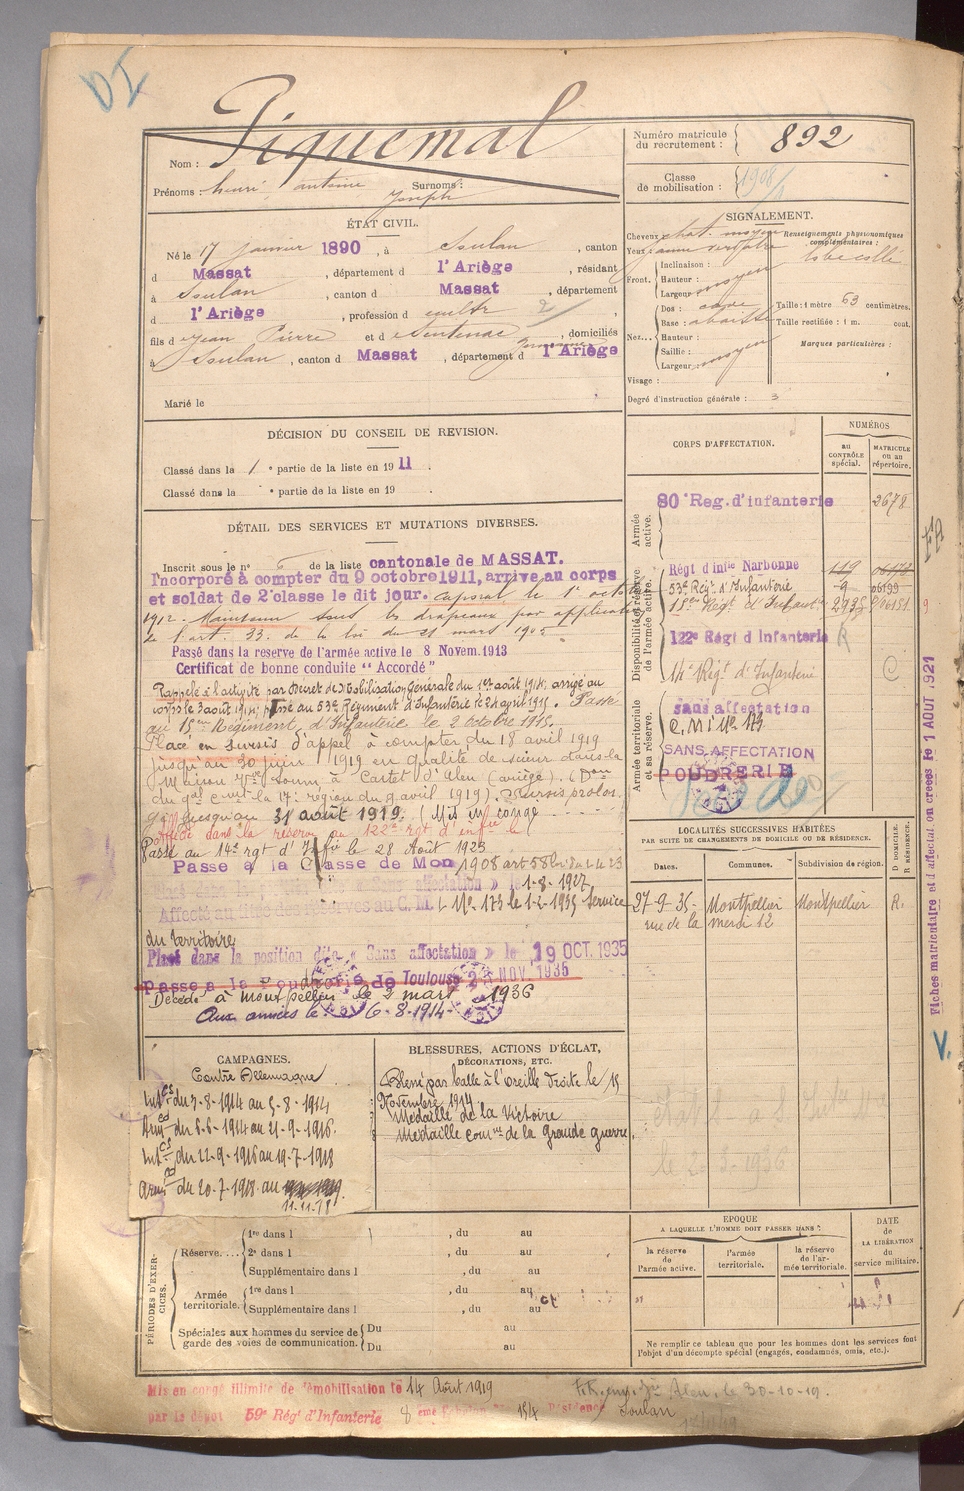 DI
Piquemal
Nom :
Prénoms : henri antoine Surnoms :
Joseph
Numéro matricule
du recrutement : 892
Classe
de mobilisation : 1908
ÉTAT CIVIL.
Né le 17 janvier 1890, à Soulan, canton
d Massat, département d l'Ariège, résidant
à Soulan, canton d Massat, département
d l'Ariège, profession de cultr
fils de Jean Pierre et de Sentenac, domiciliés
à Soulan, canton d Massat, département d l'Ariège
Marié le
SIGNALEMENT.
Cheveux chat. moyen
Yeux
Renseignements physionomiques
complémentaires :
lobe collé
Front.
Inclinaison :
Hauteur :
Largeur : moyen
Nez...
Dos : cave
Base : abaissé
Hauteur :
Saillie :
Largeur : moyen
Taille : 1 mètre 63 centimètres.
Taille rectifiée : 1 m. cent.
Marques particulières :
Visage :
Degré d'instruction générale : 3
DÉCISION DU CONSEIL DE REVISION.
Classé dans la 1e partie de la liste en 1911.
Classé dans la e partie de la liste en 19
DÉTAIL DES SERVICES ET MUTATIONS DIVERSES.
Inscrit sous le n° 6 de la liste cantonale de MASSAT.
Incorporé à compter du 9 octobre 1911, arrive au corps
et soldat de 2e classe le dit jour. Caporal le 1er octobre
1912. Maintenu sous les drapeaux par application
de l'art. 33. de la loi du 21 mars 1905
Passé dans la reserve de l'armée active le 8 Novem. 1913
Certificat de bonne conduite "Accordé"
Rappelé à l'activité par Décret de Mobilisation Générale du 1er août 1914. arrivé au
corps le 3 août 1914; passé au 53e Régiment d'Infanterie le 24 avril 1915. Passé
au 15me Régiment d'Infanterie le 2 octobre 1915.
Placé en sursis d'appel à compter du 18 avril 1919
jusqu'au 30 juin 1919 en qualité de scieur dans la
Maison Vve Soum, à Castet d'Aleu (ariège). (Don
du gal cmdt la 17e région du 9 avril 1919). Sursis prolon
gé jusqu'au 31 août 1919. (Mis en congé
Affecté dans la réserve au 122e rgt d'infie le
Passé au 14e rgt d'Infie le 28 Août 1923
Passé à la Classe de Mon 1908 art 58 loi du 1.4.23
Placé dans la sans affectation » le 1-8-1927
Affecté au titre des réserves au C. M. I. No 173 le 1-2-1935 Service
du territoire
Placé dans la position dite « Sans affectation » le 19 OCT. 1935
Passé à la Poudrerie de Toulouse 2 NOV. 1935
Décédé à Montpellier le 2 mars 1936
Aux armées le 6-8-1914
CORPS D'AFFECTATION.
NUMÉROS
au
CONTRÔLE
spécial.
MATRICULE
ou au
répertoire.
Armée
active.
80e Reg. d'infanterie 2678
Disponibilité et réserve
de l'armée active.
Régt d'infie Narbonne 119 06178
53e Régt d'Infanterie 9 06199
15me Régt d'Infanterie
122e Régt d'Infanterie R
14e Régt d'Infanterie C
Armée territoriale
et sa réserve.
sans affectation
C.M.I No 173
SANS AFFECTATION
POUDRERIE
LOCALITÉS SUCCESSIVES HABITÉES
PAR SUITE DE CHANGEMENTS DE DOMICILE OU DE RÉSIDENCE.
D. DOMICILE.
R. RÉSIDENCE.
Dates. Communes. Subdivision de région.
27-9-35 Montpellier Montpellier R.
rue de la merci 12
le 2-3-1936
Fiches matriculaire et d'affectation créées le 1 AOUT 1921
V.
CAMPAGNES.
Contre Allemagne
Intre CS du 3-8-1914 au 5-8-1914
Armées du 6-8-1914 au 21-9-1916.
Intre CS du 22-9-1916 au 19-7-1918
Armées du 20-7-1918 au
11.11.18
BLESSURES, ACTIONS D'ÉCLAT,
DÉCORATIONS, ETC.
Blessé par balle à l'oreille droite le 15
Novembre 1914
Médaille de la Victoire
Médaille comve de la Grande guerre.
PÉRIODES D'EXERCICES.
Réserve....
1re dans l , du au
2e dans l , du au
Supplémentaire dans l , du au
Armée
territoriale.
1re dans l , du au
Supplémentaire dans l , du au
Spéciales aux hommes du service de
garde des voies de communication.
Du au
Du au
EPOQUE
A LAQUELLE L'HOMME DOIT PASSER DANS :
la réserve
de
l'armée active.
l'armée
territoriale.
la réserve
de l'armée
territoriale.
DATE
de
LA LIBÉRATION
du
service militaire.
Ne remplir ce tableau que pour les hommes dont les services font
l'objet d'un décompte spécial (engagés, condamnés, omis, etc.).
Mis en congé illimité de démobilisation le 14 Août 1919
par le dépôt 59e Régt d'Infanterie 8 eme Echelon No 154 Résidence Soulan
Aleu, le 30-10-19.